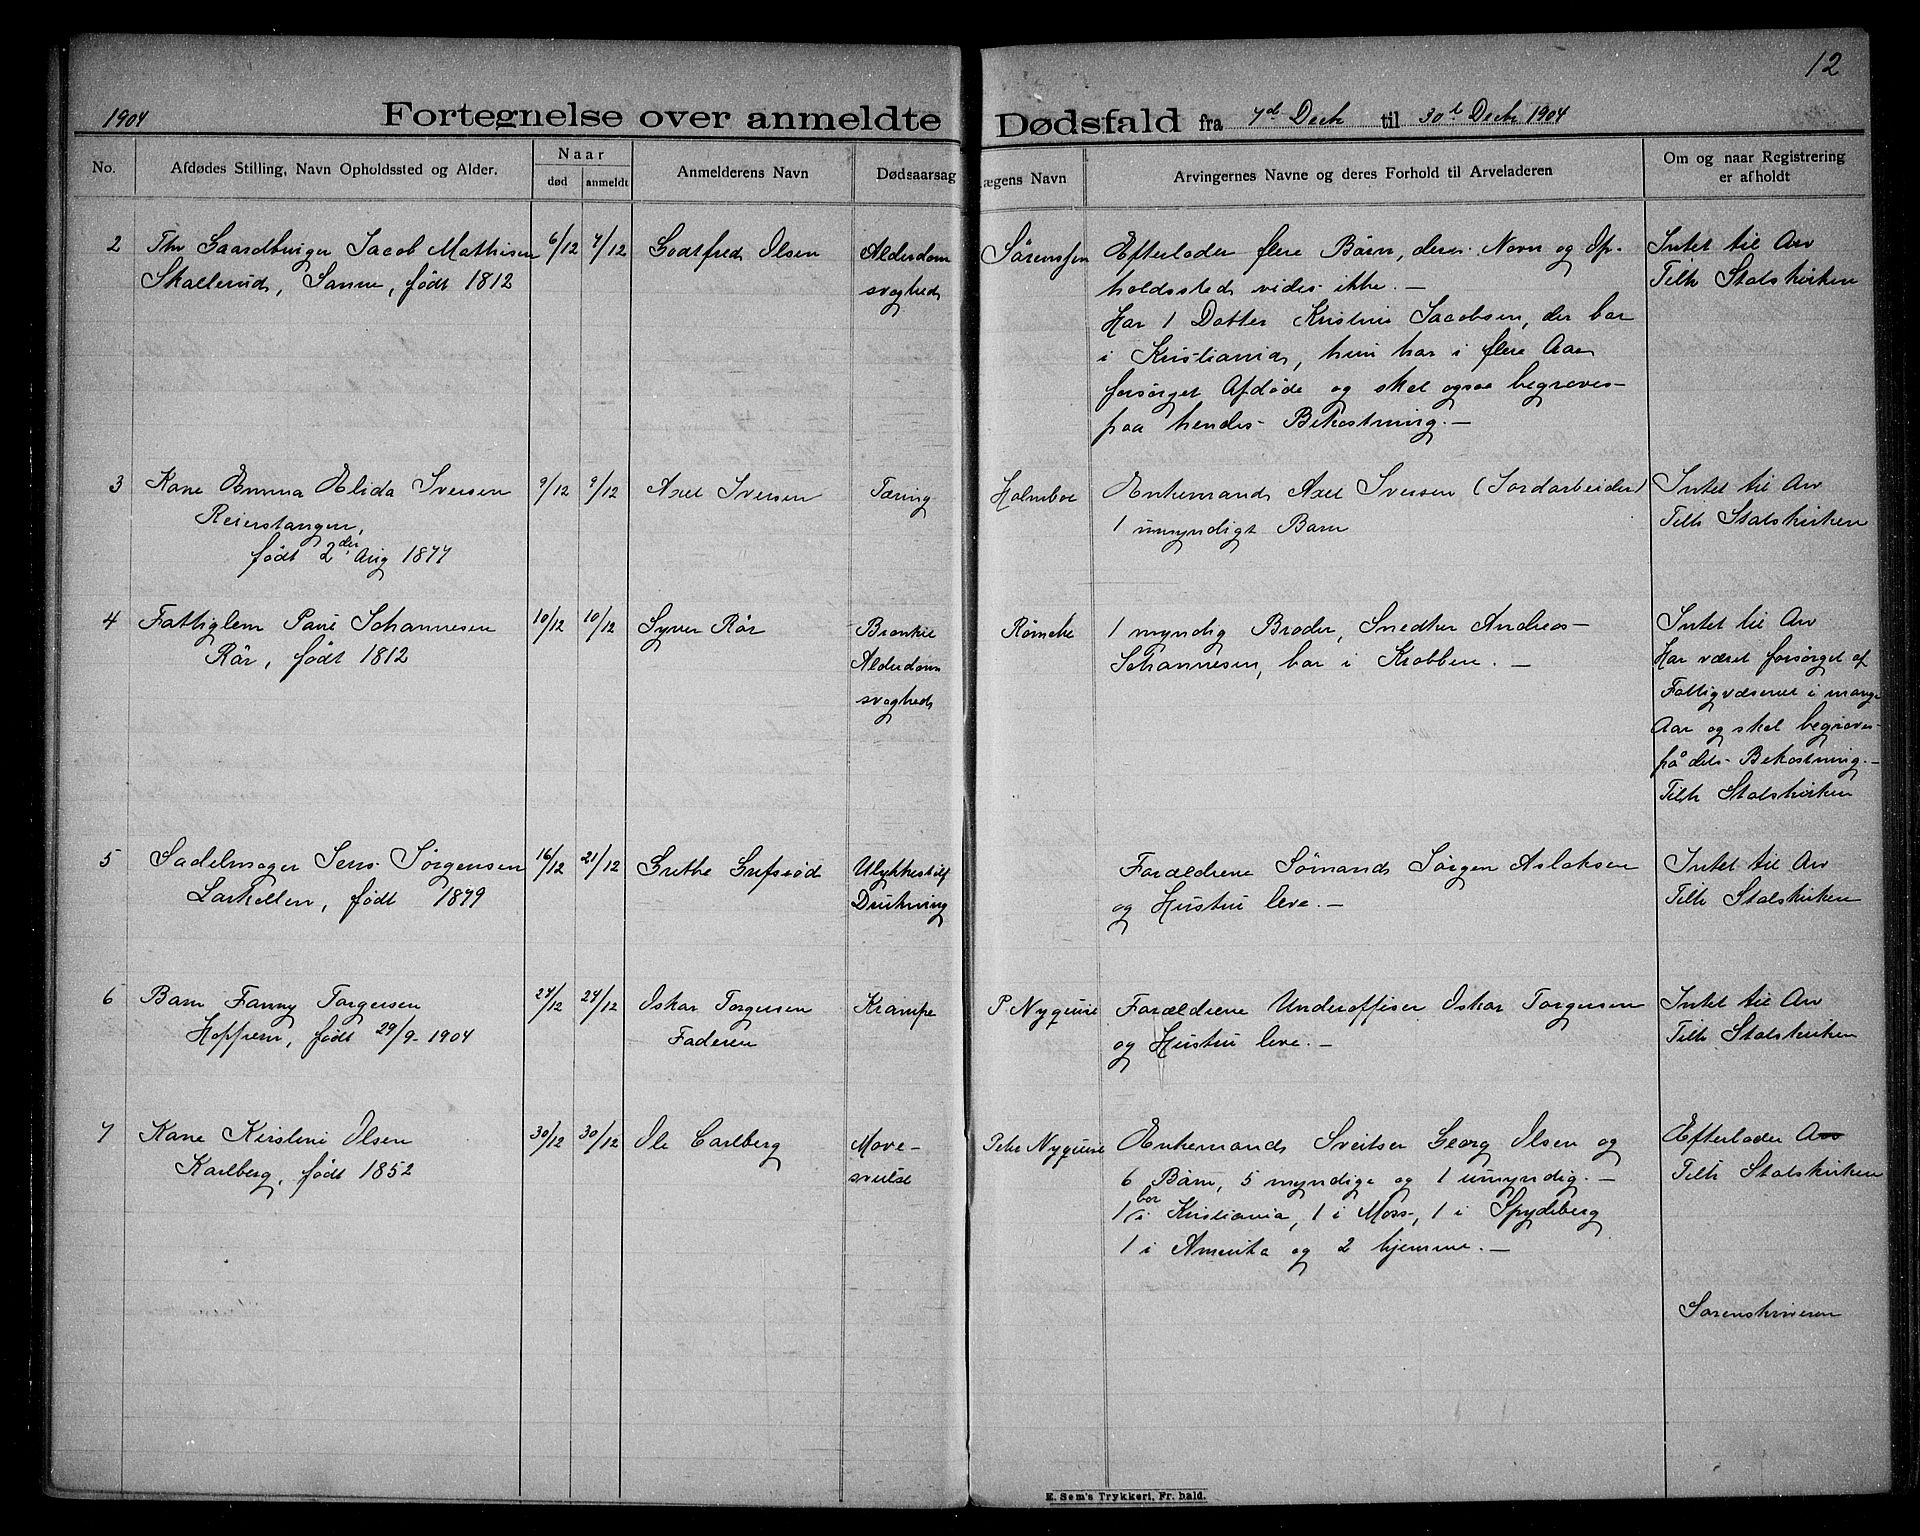 12
1904 Fortegnelse over anmeldte Dødsfald fra 7d Decbr til 30te Decbr 1904
No. Afdødes Stilling, Navn Opholdssted og Alder. Naar død anmeldt Anmelderens Navn Dødsaarsag Lægens Navn Arvingernes Navne og deres Forhold til Arveladeren Om og naar Registrering er afholdt
2 Fhv Gaardbruger Jacob Mathisen 6/12 7/12 Godtfred Olsen Alderdom Sørenssen Efterlader flere Børn, deres Navn og Op- Intet til Arv
Skallerud, Sanne, født 1812 svaghed holdssted vides ikke. — Tilh Statskirken
Har 1 Datter Kristine Jacobsen, der bor
i Kristiania, hun har i flere Aar
forsørget Afdøde og skal ogsaa begraves
paa hendes Bekostning. —
3 Kone Emma Elida Iversen 9/12 9/12 Axel Iversen Tæring Holmboe Enkemand Axel Iversen (Jordarbeider) Intet til Arv
Reierstangen, 1 umyndigt Barn Tilh Statskirken
født 2den Aug 1877
4 Fattiglem Povel Johannesen 10/12 10/12 Syver Rør Bronkit Rømcke 1 myndig Broder, Snedker Andreas Intet til Arv
Rør, født 1812 Alderdom Johannesen, bor i Krobben. — Har været forsørget af
svaghed Fattigvæsenet i mange
Aar og skal begraves
på dets Bekostning. —
Tilh Statskirken
5 Sadelmager Jens Jørgensen 16/12 21/12 Grethe Gipsrød Ulykkestilf Forældrene Sømand Jørgen Aslaksen Intet til Arv
Larkollen, født 1879 Drukning og Hustru leve. — Tilh Statskirken
6 Barn Fanny Torgersen 24/12 24/12 Oskar Torgersen Krampe P Nyquist Forældrene Underoffiser Oskar Torgersen Intet til Arv
Hoppern, født 29/9-1904 Faderen og Hustru leve. — Tilh Statskirken
7 Kone Kirstine Olsen 30/12 30/12 Ole Carlberg Mave- Peter Nyquist Enkemand Sveitser Georg Olsen og Efterlader Arv
Karlberg, født 1852 svulst 6 Børn, 5 myndige og 1 umyndig. — Tilh Statskirken
1 bor i Kristiania, 1 i Moss, 1 i Spydeberg
1 i Amerika og 2 hjemme. —
Sorenskriveren
E. Sem's Trykkeri, Fr. hald.